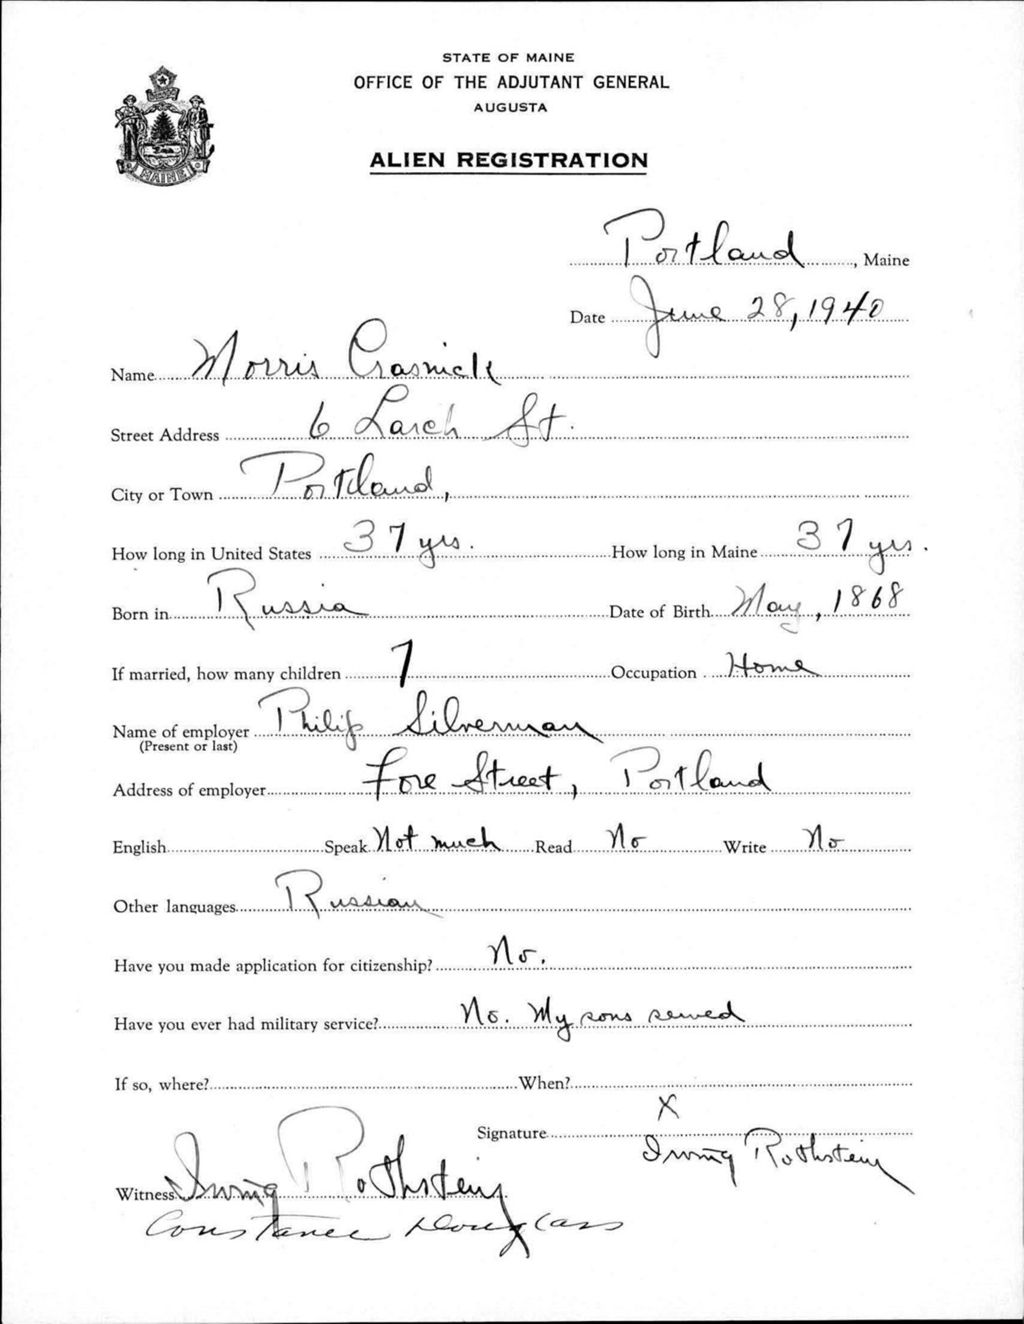 STATE OF MAINE
OFFICE OF THE ADJUTANT GENERAL
AUGUSTA
ALIEN REGISTRATION
MAINE
Portland, Maine
Date June 28, 1940
Name Morris Crasnick
Street Address 6 Larch St.
City or Town Portland,
How long in United States 37 yrs. How long in Maine 37 yrs.
Born in Russia Date of Birth May, 1868
If married, how many children 7 Occupation Home
Name of employer Philip Silverman
(Present or last)
Address of employer Fore Street, Portland
English Speak Not much Read No Write No
Other languages Russian
Have you made application for citizenship? No.
Have you ever had military service? No. My sons served
If so, where? When?
X
Signature Irving Rothstein
Witness Irving Rothstein
Constance Douglass